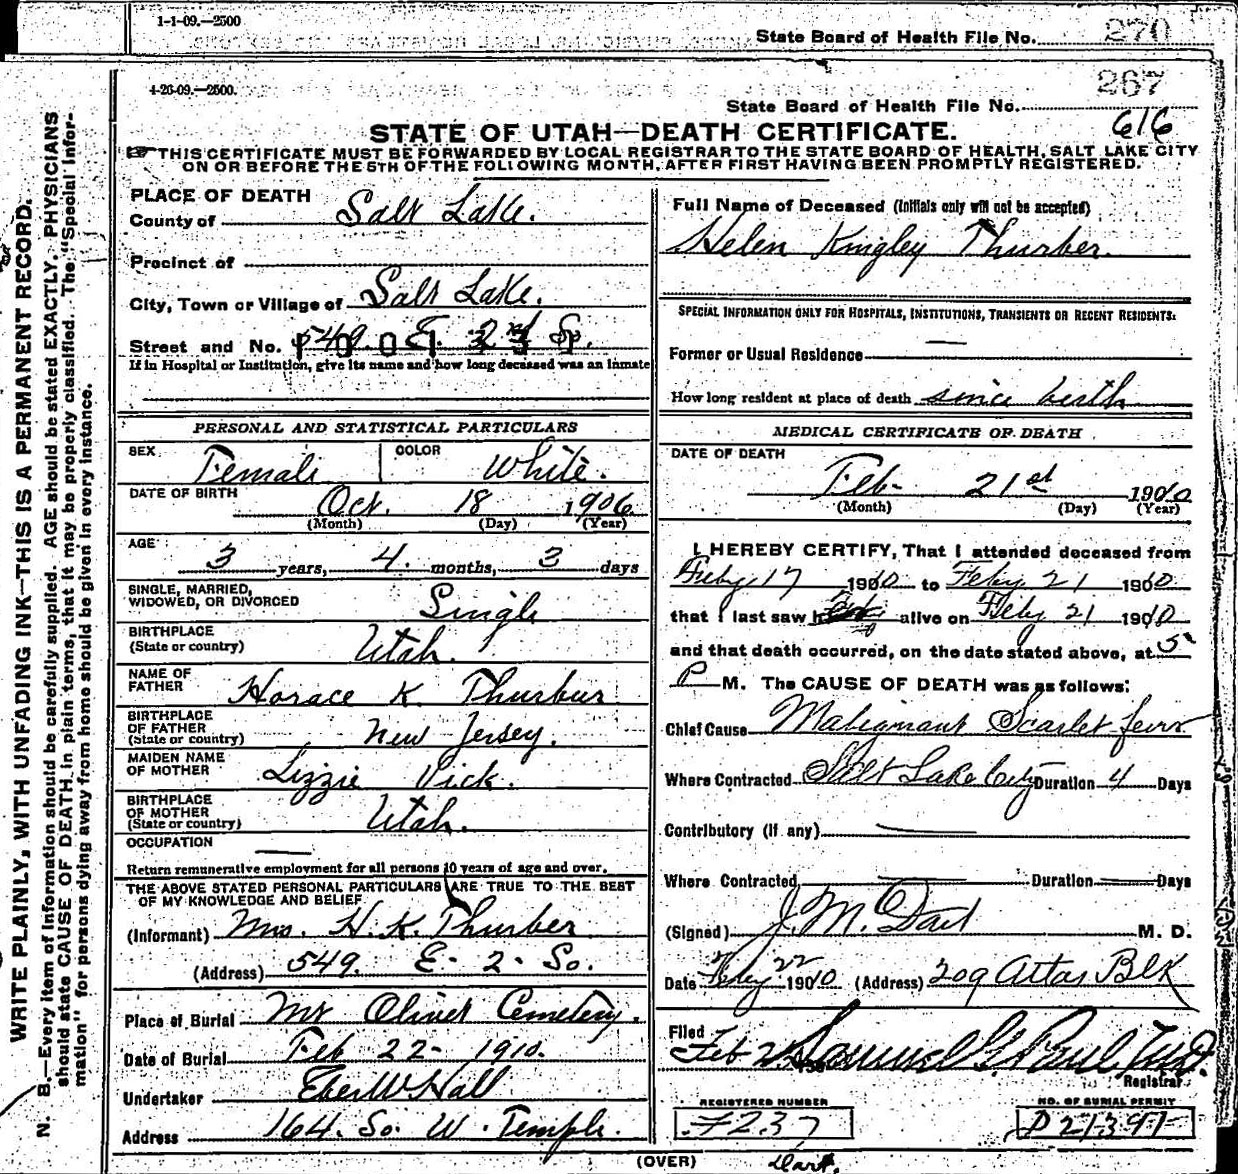 1-1-09.—2500
State Board of Health File No. 270
4-26-09.—2500.
267
State Board of Health File No.
616
STATE OF UTAH—DEATH CERTIFICATE.
THIS CERTIFICATE MUST BE FORWARDED BY LOCAL REGISTRAR TO THE STATE BOARD OF HEALTH, SALT LAKE CITY
ON OR BEFORE THE 5TH OF THE FOLLOWING MONTH, AFTER FIRST HAVING BEEN PROMPTLY REGISTERED.
WRITE PLAINLY, WITH UNFADING INK—THIS IS A PERMANENT RECORD.
N. B.—Every item of information should be carefully supplied. AGE should be stated EXACTLY. PHYSICIANS
should state CAUSE OF DEATH in plain terms, that it may be properly classified. The "Special Infor-
mation" for persons dying away from home should be given in every instance.
PLACE OF DEATH
County of Salt Lake.
Precinct of
City, Town or Village of Salt Lake.
Street and No. 549. E. 2d S.
If in Hospital or Institution, give its name and how long deceased was an inmate
PERSONAL AND STATISTICAL PARTICULARS
SEX Female COLOR White.
DATE OF BIRTH Oct. 18 1906.
(Month) (Day) (Year)
AGE 3 years, 4. months, 3 days
SINGLE, MARRIED,
WIDOWED, OR DIVORCED Single
BIRTHPLACE
(State or country) Utah.
NAME OF
FATHER Horace K. Thurber
BIRTHPLACE
OF FATHER
(State or country) New Jersey.
MAIDEN NAME
OF MOTHER Lizzie Vick.
BIRTHPLACE
OF MOTHER
(State or country) Utah.
OCCUPATION
Return remunerative employment for all persons 10 years of age and over.
THE ABOVE STATED PERSONAL PARTICULARS ARE TRUE TO THE BEST
OF MY KNOWLEDGE AND BELIEF
(Informant) Mrs. H. K. Thurber
(Address) 549. E. 2. So.
Place of Burial Mt Olivet Cemetery.
Date of Burial Feb 22 - 1910.
Undertaker Eber W Hall
Address 164. So. W. Temple.
Full Name of Deceased (Initials only will not be accepted)
Helen Kingley Thurber.
SPECIAL INFORMATION ONLY FOR HOSPITALS, INSTITUTIONS, TRANSIENTS OR RECENT RESIDENTS:
Former or Usual Residence —
How long resident at place of death since birth
MEDICAL CERTIFICATE OF DEATH
DATE OF DEATH
Feb- 21st 1910
(Month) (Day) (Year)
I HEREBY CERTIFY, That I attended deceased from
Feby 17 1910 to Feby 21 1910
that I last saw h alive on Feby 21 1910
and that death occurred, on the date stated above, at 5
P M. The CAUSE OF DEATH was as follows:
Chief Cause Malignant Scarlet fever
Where Contracted Salt Lake City Duration 4 Days
Contributory (If any)
Where Contracted Duration Days
(Signed) J. M. Dart M. D.
Date Feby 22 1910 (Address) 209 Atlas Blk
Filed
Feb 2 Samuel G. Paul M.D.
Registrar
REGISTERED NUMBER
F237
NO. OF BURIAL PERMIT
(OVER)
Dart.